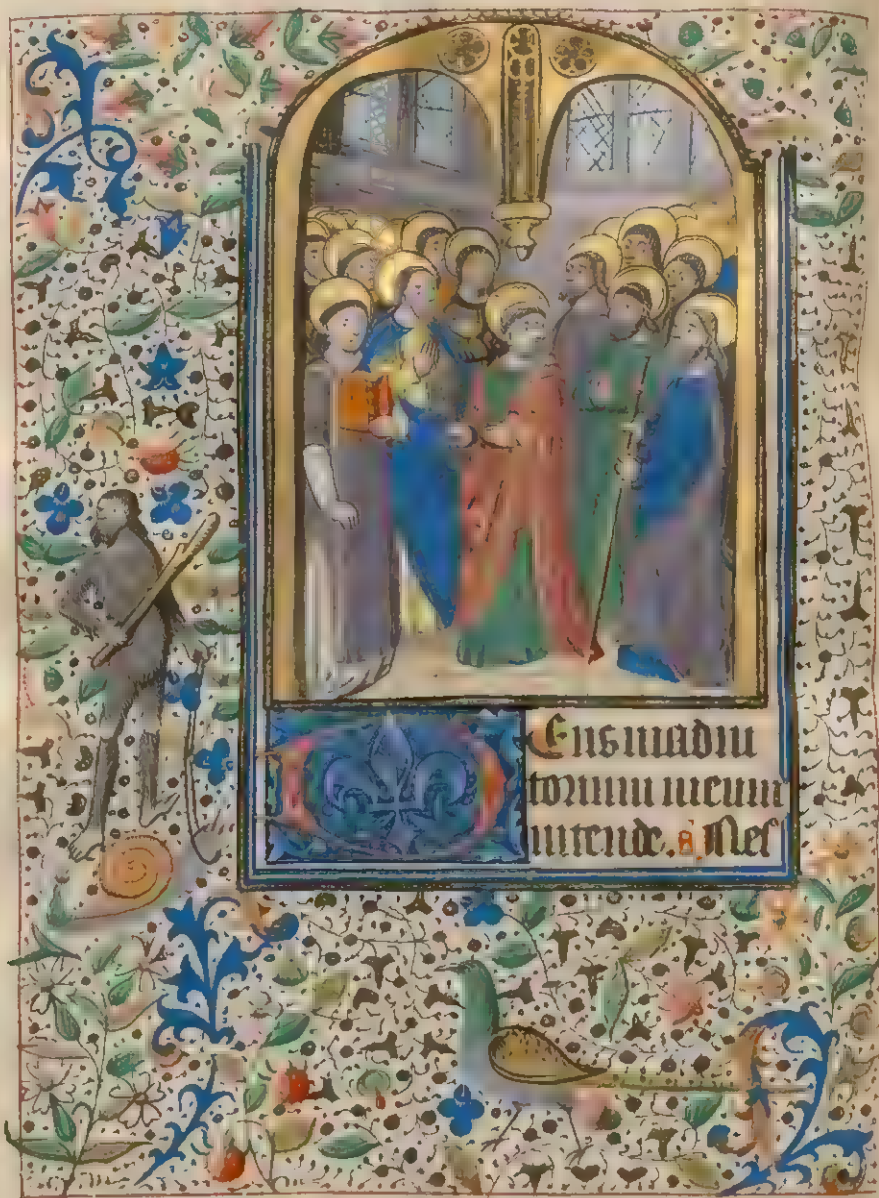 DEus in adiu
torium meum
intende.